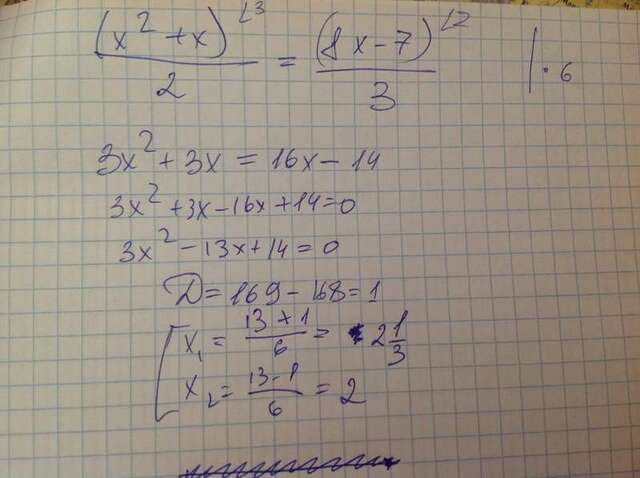 (x² + x)∠3 / 2 = (8x - 7)∠2 / 3 | · 6
3x² + 3x = 16x - 14
3x² + 3x - 16x + 14 = 0
3x² - 13x + 14 = 0
D = 169 - 168 = 1
[ x₁ = (13 + 1) / 6 = 2 1/3
x₂ = (13 - 1) / 6 = 2